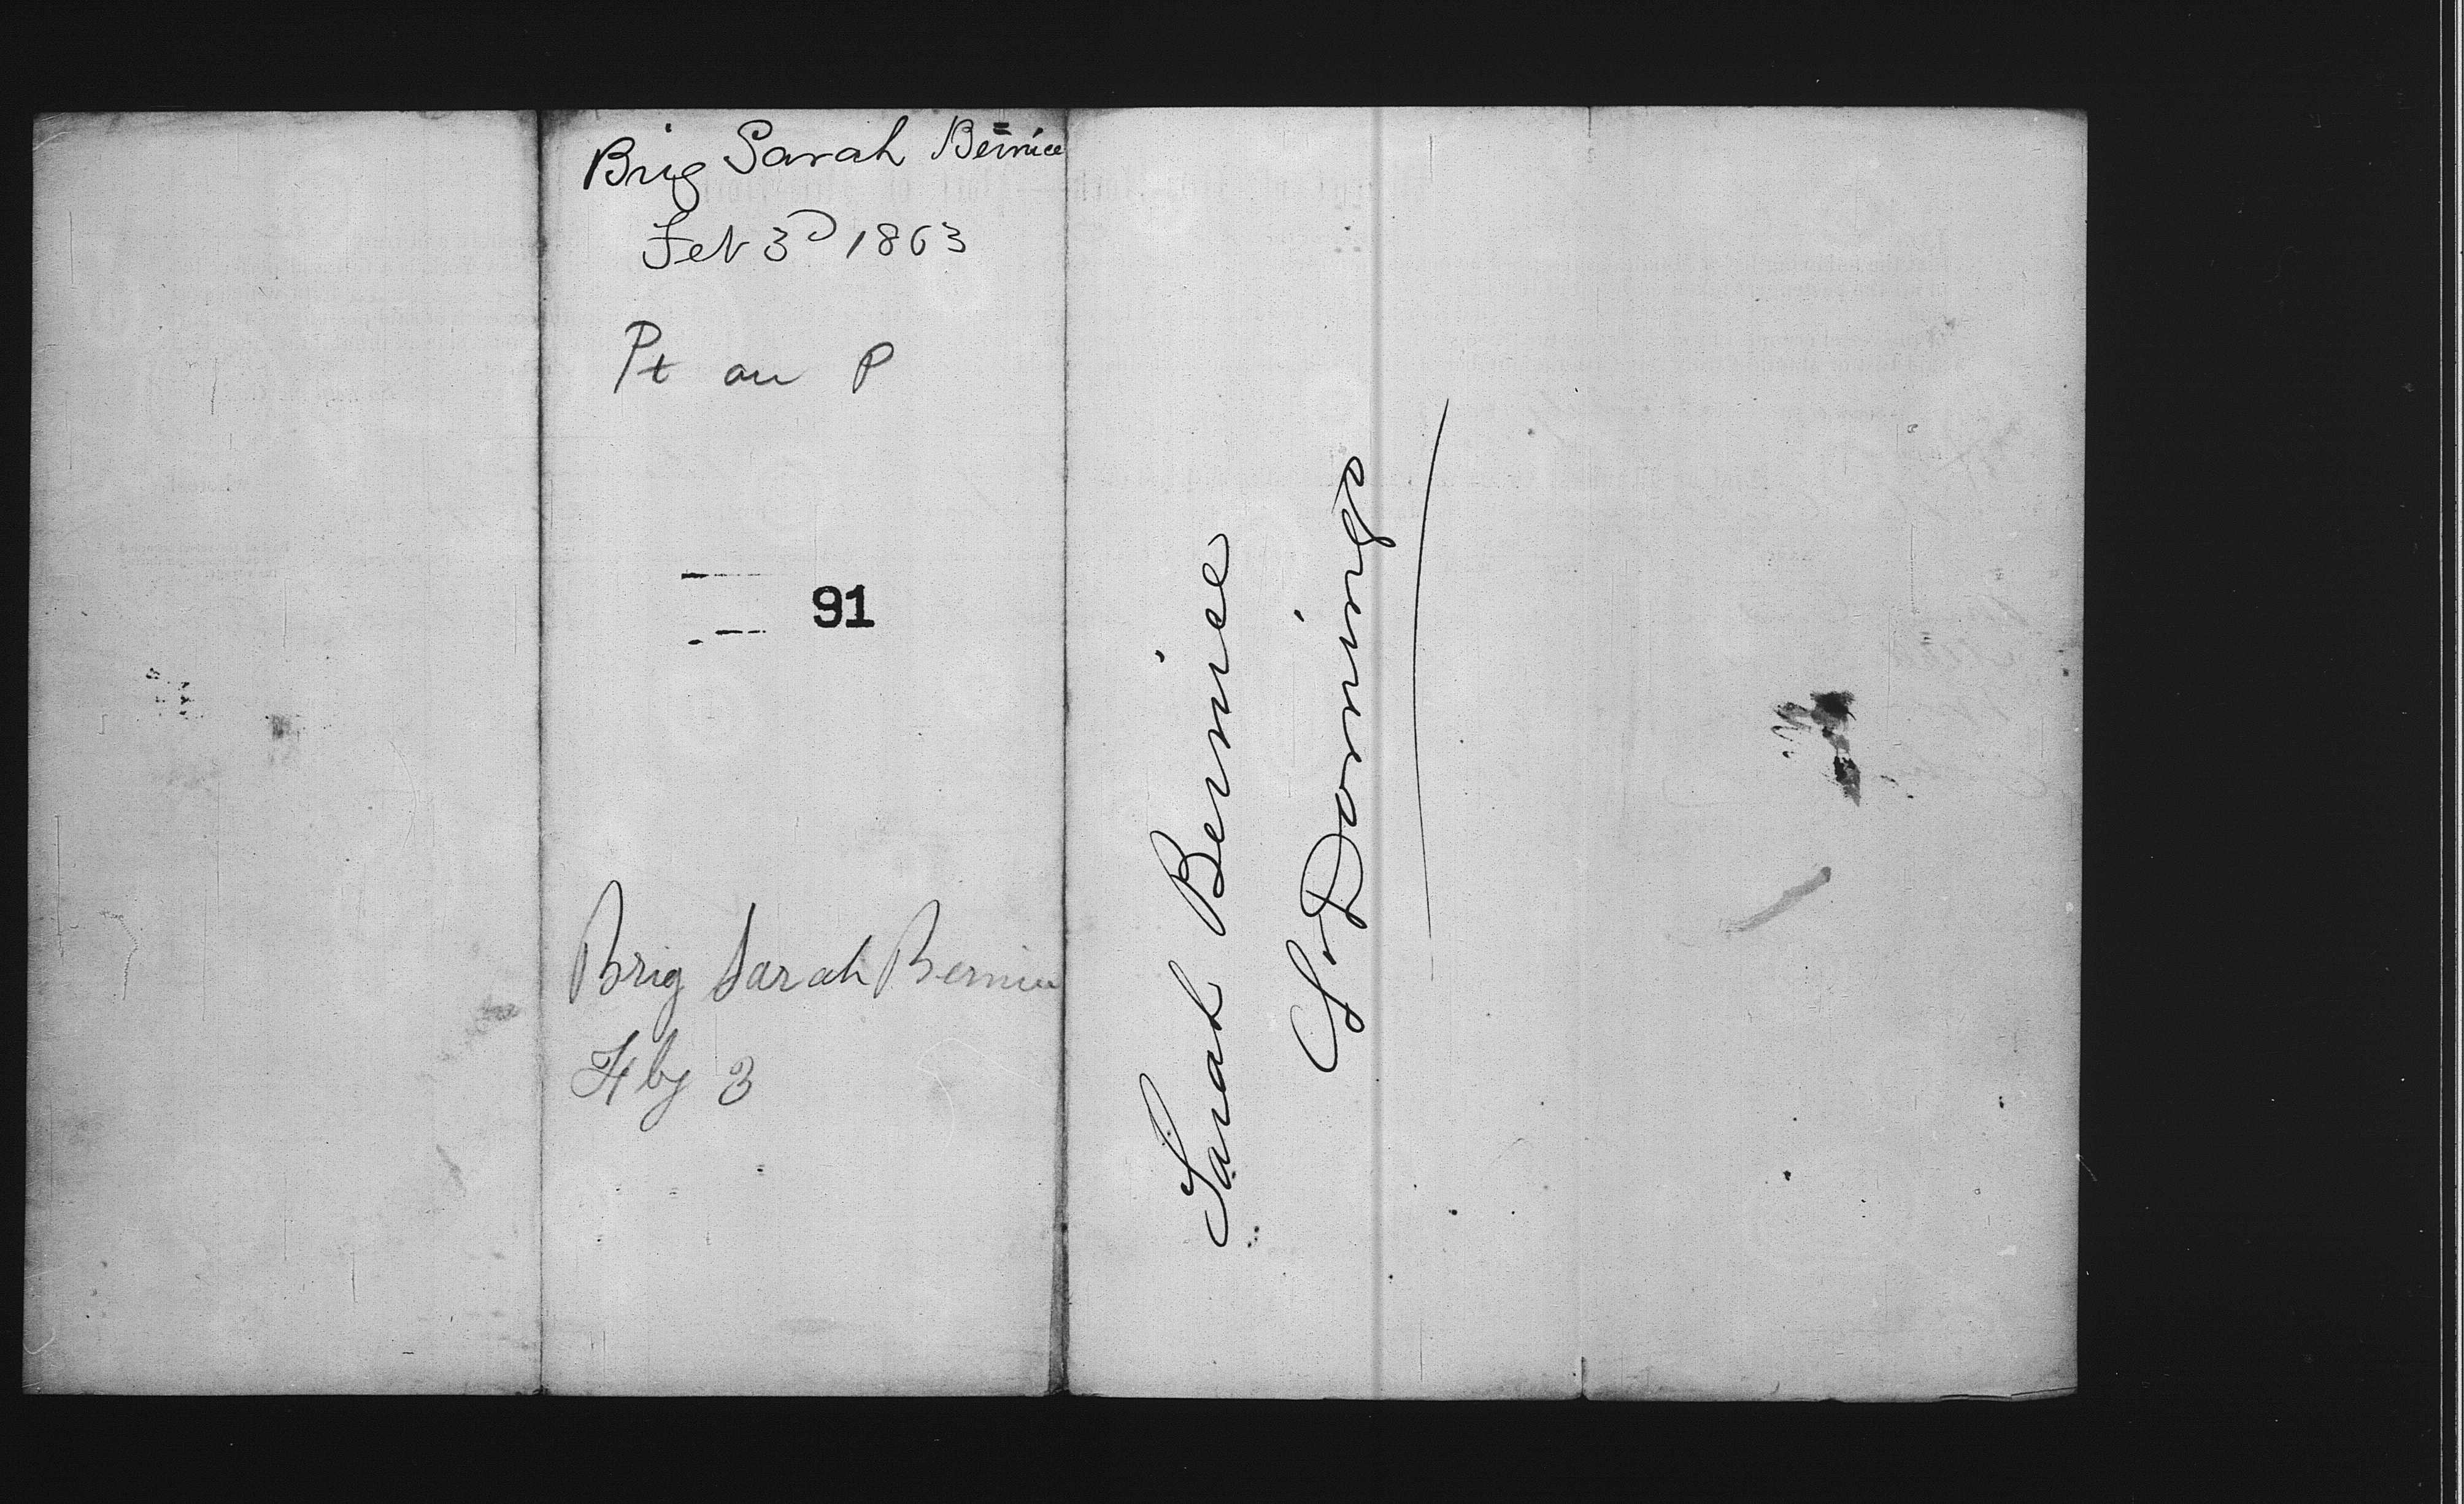 Brig Sarah Bernice
Feb 3d 1863
Pt au P
91
Brig Sarah Bernice
Fby 3
Sarah Bernice
St Domingo